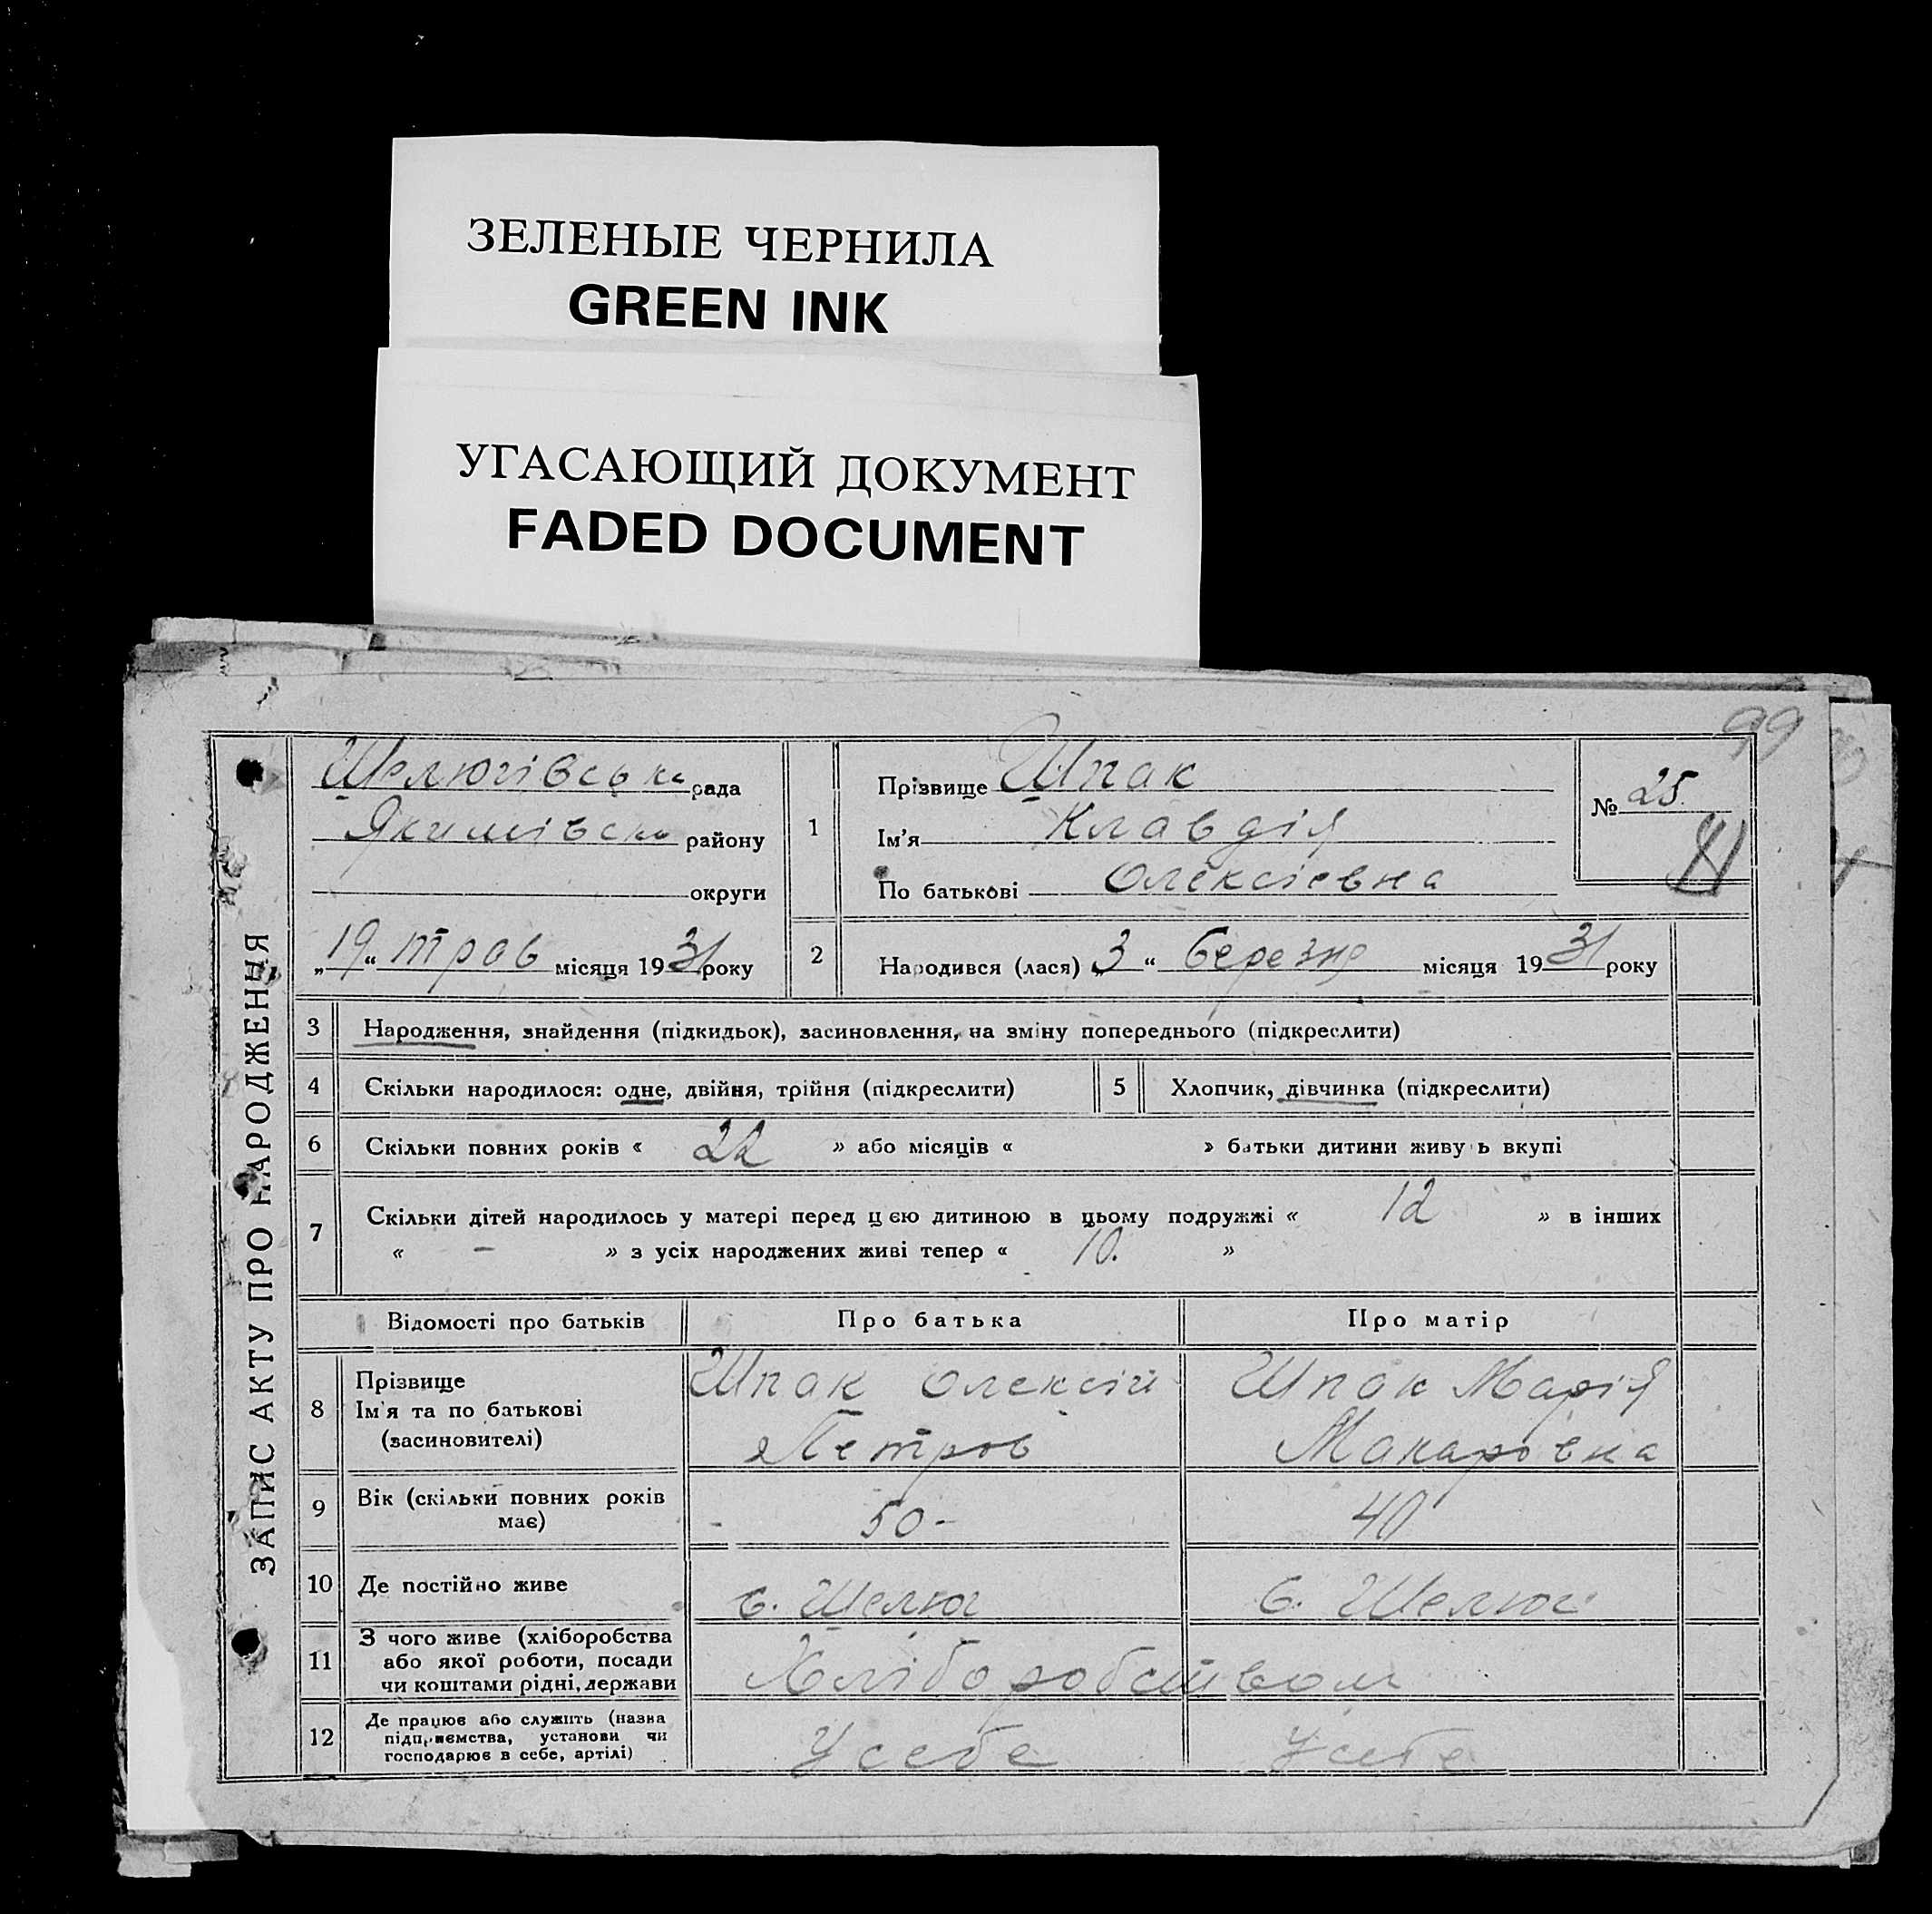 ЗЕЛЕНЫЕ ЧЕРНИЛА
GREEN INK
УГАСАЮЩИЙ ДОКУМЕНТ
FADED DOCUMENT
99
ЗАПИС АКТУ ПРО НАРОДЖЕННЯ
Шелюгівська рада
Якимівськ району
округи
„19“ трав місяця 1931 року
1
Прізвище Шпак
Ім'я Клавдія
По батькові Олексієвна
№ 25.
2
Народився (лася) „3“ березня місяця 1931 року
3 Народження, знайдення (підкидьок), засиновлення, на зміну попереднього (підкреслити)
4 Скільки народилося: одне, двійня, трійня (підкреслити) 5 Хлопчик, дівчинка (підкреслити)
6 Скільки повних років « 22 » або місяців « » батьки дитини живуть вкупі
7 Скільки дітей народилось у матері перед цією дитиною в цьому подружжі « 12 » в інших
« - » з усіх народжених живі тепер « 10. »
Відомості про батьків Про батька Про матір
8 Прізвище
Ім'я та по батькові
(засиновителі)
Шпак Олексій
Петров
Шпак Марія
Макаровна
9 Вік (скільки повних років
має)
- 50 -
40
10 Де постійно живе с. Шелюг с. Шелюг
11 З чого живе (хліборобства
або якої роботи, посади
чи коштами рідні, держави
Хліборобством
12 Де працює або служить (назва
підприємства, установи чи
господарює в себе, артілі)
У себе У себе